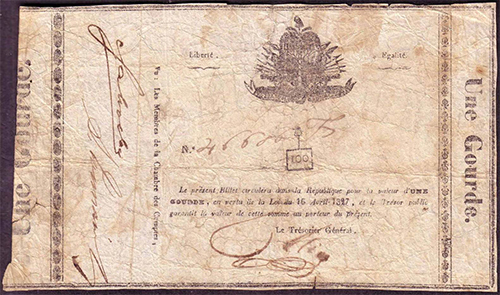 Une Gourde.
Vu : Les Membres de la Chambre des Comptes,
Liberté. Egalité.
N.°
100
Le présent Billet circulera dans la République pour la valeur d'UNE
GOURDE, en vertu de la Loi du 16 Avril 1827, et le Trésor public
garantit la valeur de cette somme au porteur du présent.
Le Trésorier Général,
Une Gourde.